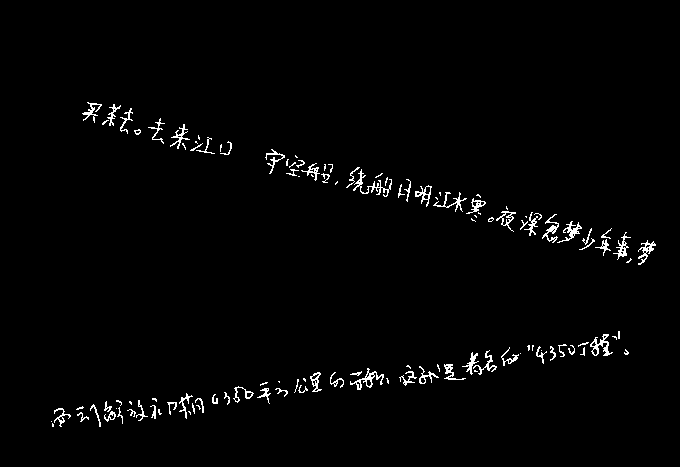 买茶去。去来江口 守空船,绕船月明江水寒。夜深忽梦少年事,梦
而到解放初期4350平方公里的面积,这就是著名的"4350工程"。